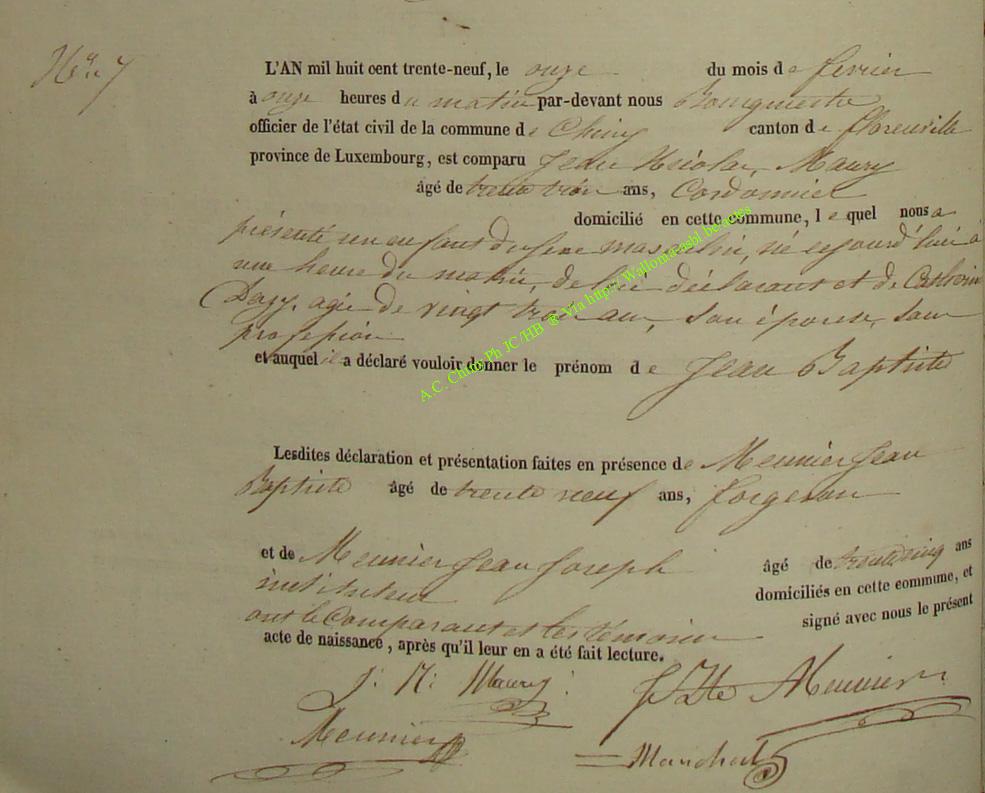 N° 7
L'AN mil huit cent trente-neuf, le onze du mois de fevrier
à onze heures du matin par-devant nous Bourgmestre
officier de l'état civil de la commune de Chiny canton de florenville
province de Luxembourg, est comparu Jean Nicolas Maury
âgé de trente trois ans, Cordonnier
domicilié en cette commune, lequel nous a
présenté un enfant du sexe masculin, né cejourd'hui à
une heure du matin, de lui déclarant et de Catherine
agée de vingt trois ans, son épouse, sans
profession
et auquel il a déclaré vouloir donner le prénom de Jean Baptiste
Lesdites déclaration et présentation faites en présence de Meunier Jean
Baptiste âgé de trente neuf ans, forgeron
et de Meunier Jean Joseph âgé de trente cinq ans
instituteur domiciliés en cette commune, et
ont le Comparant et les témoins signé avec nous le présent
acte de naissance, après qu'il leur en a été fait lecture.
J. N. Maury Meunier
Meunier
A.C. Chiny Ph JC/HB ® Via http://Wallonia.asbl.be/actes